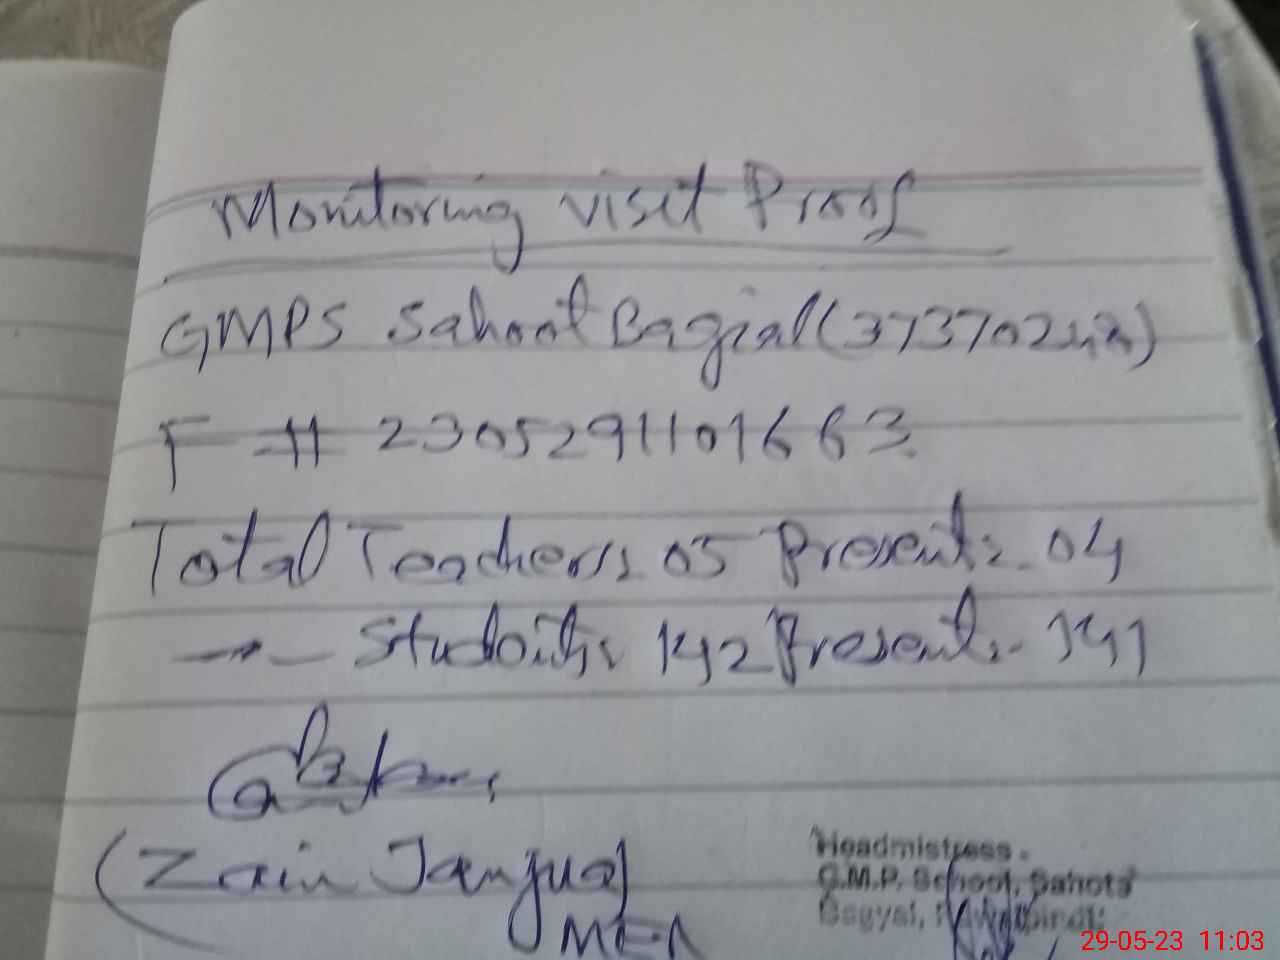 Monitoring visit Proof
GMPS Sahoot Bagial (
F # 2305291101663
Total Teachers: 05 Present:- 04
-"- Students: 142 Present:- 141
(Zain Janjua)
MEA
Headmistress.
G.M.P. School, Sahote
Bagyal, Rawalpindi
29-05-23 11:03